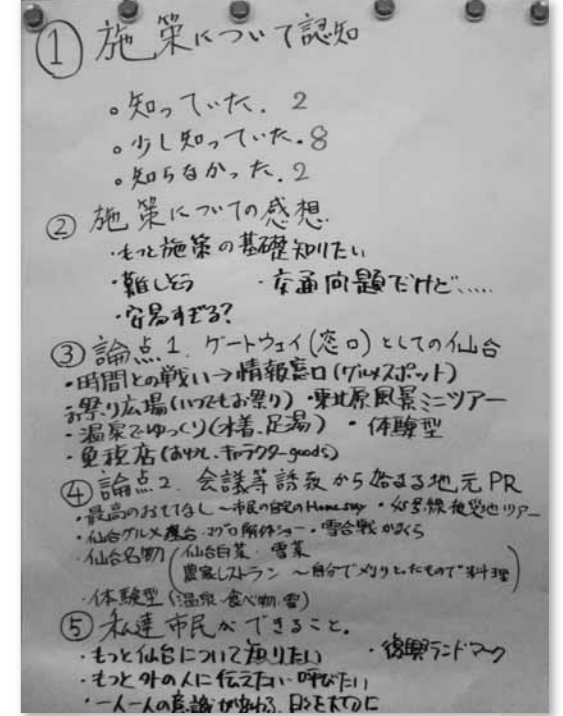 ① 施策について認知
。知っていた. 2
。少し知っていた. 8
。知らなかった. 2
② 施策についての感想
・もっと施策の基礎知りたい
・難しそう ・交通問題だけど.....
・安易すぎる?
③ 論点1. ゲートウェイ(窓口)としての仙台
・時間との戦い→情報窓口(グルメスポット)
お祭り広場(いつでもお祭り) ・東北原風景ミニツアー
・温泉でゆっくり(水着、足湯) ・体験型
・免税店(おサル、キャラクターgoods)
④ 論点2. 会議等誘致から始まる地元PR
・最高のおもてなし~市民の自宅のHome stay ・45号線被災地ツアー
・仙台グルメ屋台・マグロ解体ショー・雪合戦かまくら
・仙台名物(仙台白菜・雪菜
農家レストラン ~自分でメリとったもので料理)
・体験型(温泉・食べ物・雪)
⑤ 私達市民ができること。
・もっと仙台について知りたい ・復興ランドマーク
・もっと外の人に伝えたい・呼びたい
・一人一人の意識が変わる、日々を大切に